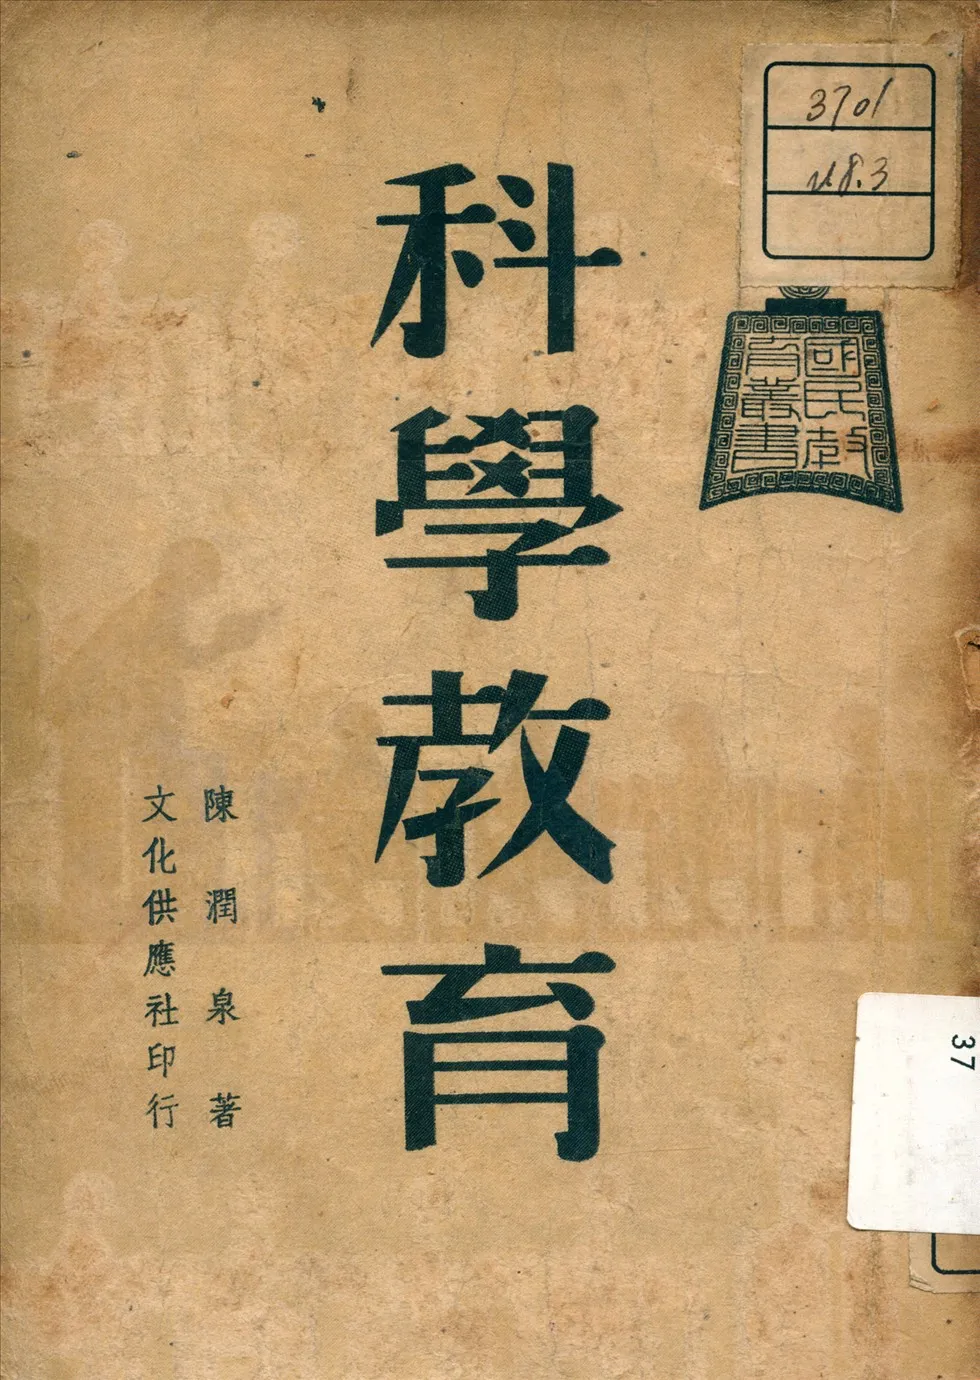 3701
國民教
育叢書
科學教育
陳潤泉著
文化供應社印行
37